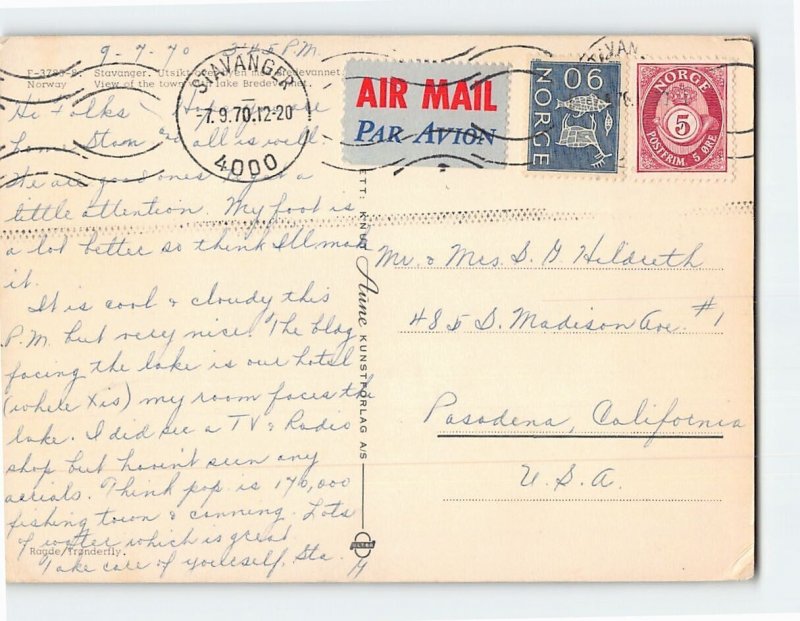 9-7-70 3:45 P.M.
F-3785-8. Stavanger. Utsikt over byen med Bredevannet.
Norway View of the town and lake Bredevannet.
Hi Folks - Hope you are
home Stan & all is well.
We are good ones to get a
little attention. My foot is
a lot better so think I'll make
it.
It is cool & cloudy this
P.M. but very nice. The bldg
facing the lake is our hotel
(where X is) my room faces the
lake. I did see a TV & Radio
shop but haven't seen any
aerials. Think pop is 170,000
fishing town & canning. Lots
of water which is great
Take care of yourself, Sta.
Ragde/Trønderfly.
STAVANGER
-7.9.70.12-20
4000
AIR MAIL
PAR AVION
NORGE
90
NORGE
5
POSTFRIM. 5 ØRE
STAVAN
ETT: KNUT Aune KUNSTFORLAG A/S
Mr. & Mrs. D. G. Hildreth
485 S. Madison Ave. #1
Pasadena, California
U.S.A.